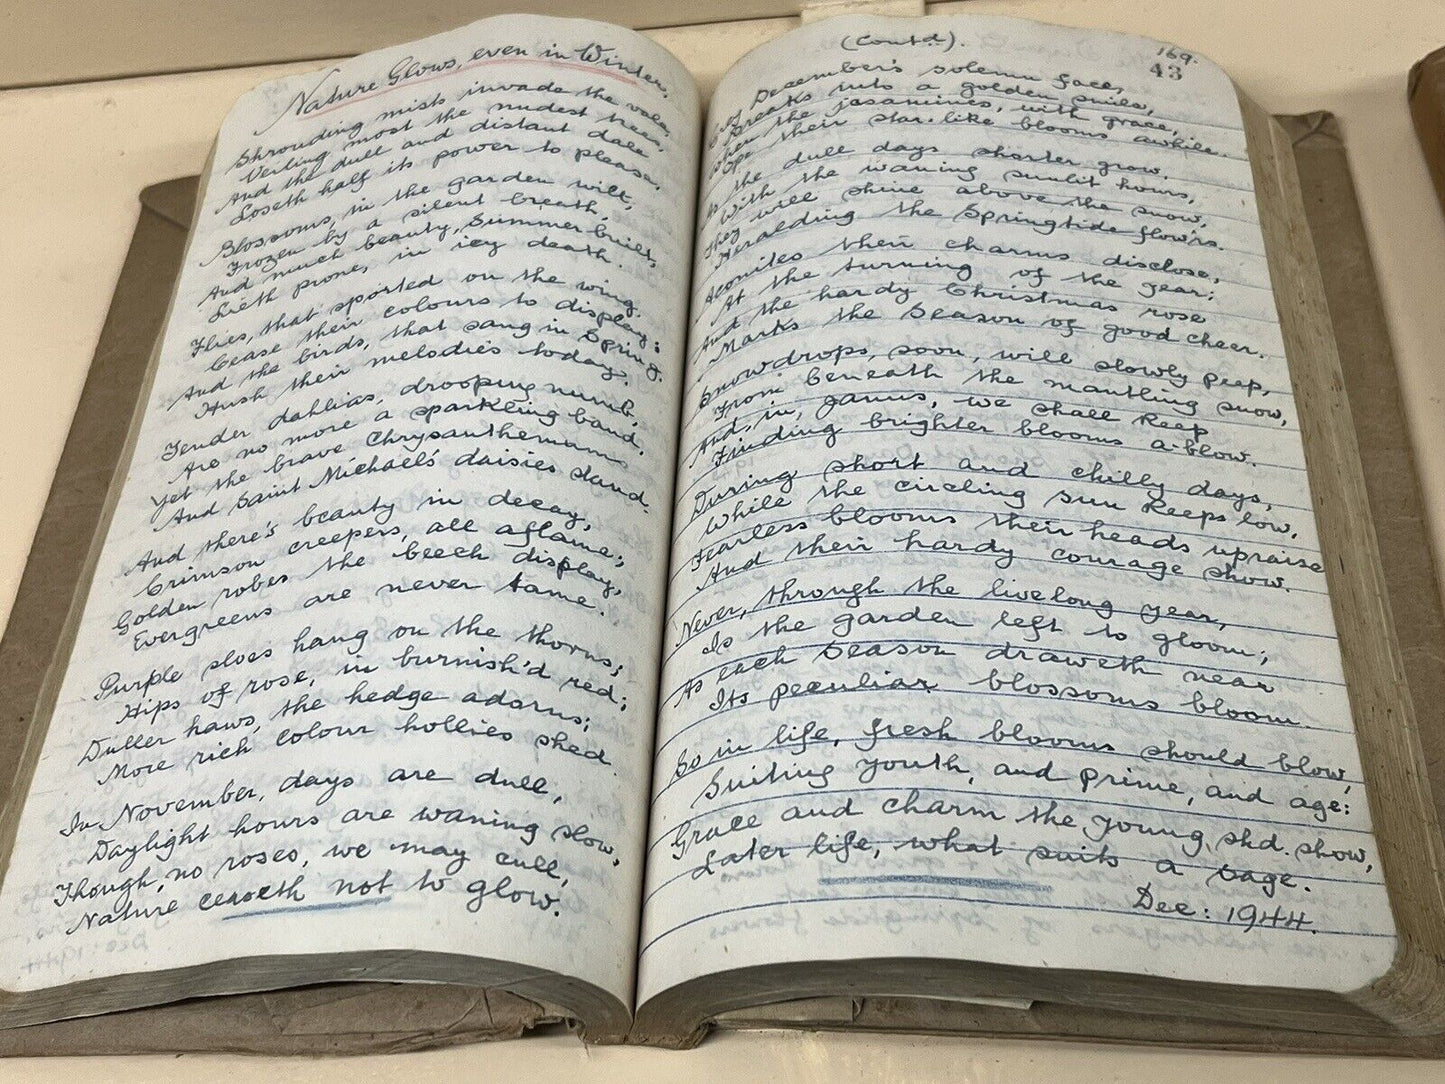 Nature Glows, even in Winter.
Shrouding mists invade the vale,
Veiling most the nudest trees,
And the dull and distant dale
Loseth half its power to please.
Blossoms, in the garden wilt,
Frozen by a silent breath,
And much beauty, Summer-built,
Lieth prone, in icy death.
Flies, that sported on the wing,
Cease their colours to display;
And the birds, that sang in Spring,
Hush their melodies today.
Tender dahlias, drooping numb,
Are no more a sparkling band,
Yet the brave Chrysanthemums
And Saint Michael's daisies stand.
And there's beauty in decay,
Crimson creepers, all aflame;
Golden robes the beech display,
Evergreens are never tame.
Purple sloes hang on the thorns;
Hips of rose, in burnish'd red;
Duller haws, the hedge adorns;
More rich colour hollies shed.
In November, days are dull,
Daylight hours are waning slow,
Though, no roses, we may cull,
Nature ceaseth not to glow.
(Contd.).
169.
43
December's solemn face,
Breaks into a golden smile,
When the jasamines, with grace,
Ope their star-like blooms awhile.
As the dull days shorter grow,
With the waning sunlit hours,
They will shine above the snow,
Heralding the Springtide flow'rs.
Aconites their charms disclose,
At the turning of the year;
And the hardy Christmas rose
Marks the Season of good cheer.
Snowdrops, soon, will slowly peep,
From beneath the mantling snow,
And, in, we shall keep
Finding brighter blooms a-blow.
During short and chilly days,
While the circling sun keeps low,
Fearless blooms their heads upraise
And their hardy courage show.
Never, through the livelong year,
Is the garden left to gloom;
As each Season draweth near
Its peculiar blossoms bloom.
So in life, fresh blooms should blow,
Suiting youth, and prime, and age:
Grace and charm the young, shd. show,
Later life, what suits a sage.
Dec: 1944.